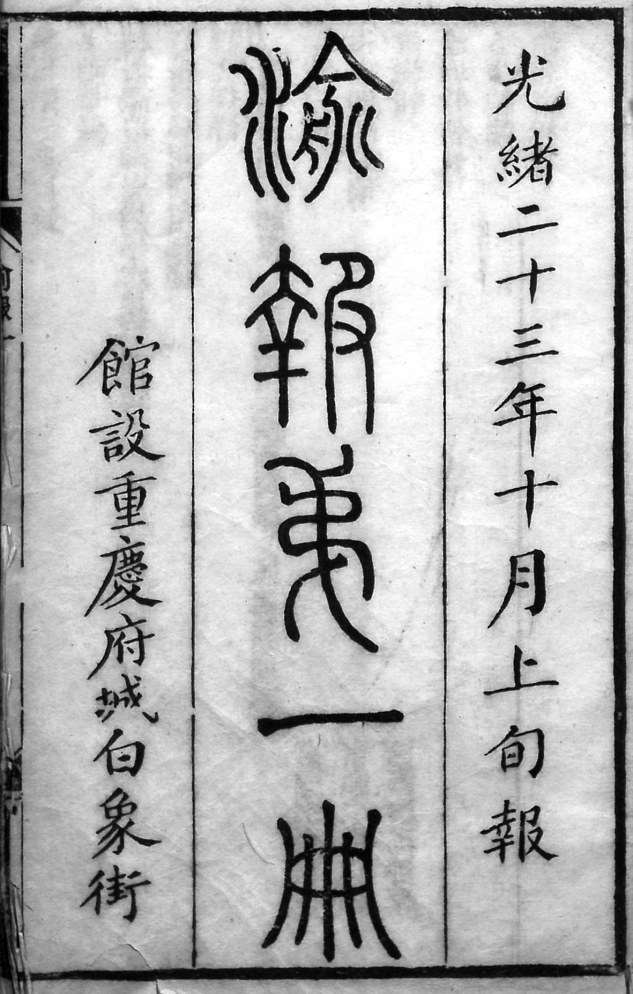 光緒二十三年十月上旬報
渝報第一冊
館設重慶府城白象街